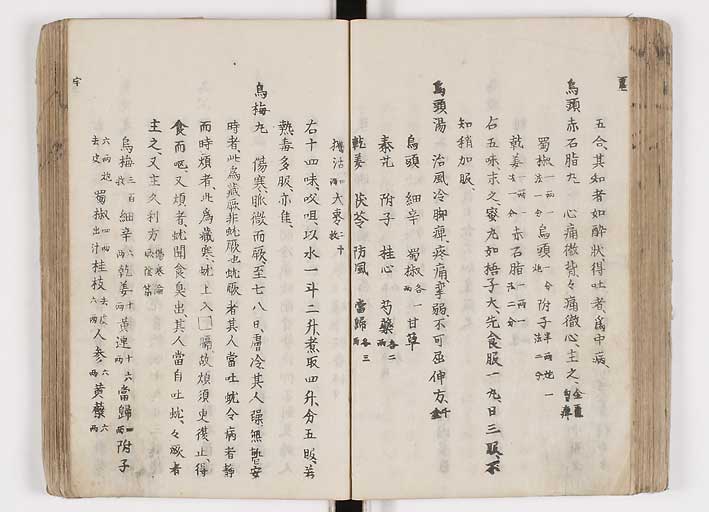 五合、其知者如醉狀、得吐者爲中病、
烏頭赤石脂丸 心痛徹背、々痛徹心、主之、金匱胷痺
蜀椒一兩法一分 烏頭一分炮 附子半兩炮法二分 一
乾姜一兩法一分 赤石脂一兩法二分
右五味末之、蜜丸如捂子大、先食服一丸、日三服、不
知稍加服、
烏頭湯 治風冷脚痺、疼痛、攣弱、不可屈伸方、千金
烏頭 細辛 蜀椒各一兩 甘草
秦艽 附子 桂心 芍藥各二兩
乾姜 茯苓 防風 當歸各三兩
獨活四兩 大棗二十枚
右十四味、㕮咀、以水一斗二升、煮取四升、分五服、若
熱毒多服亦佳、
烏梅丸 傷寒、脈微而厥、至七八日、膚冷、其人躁無暫安
時者、此爲藏厥、非蚘厥也、蚘厥者、其人當吐蚘、令病者靜
而時煩者、此爲藏寒、蚘上入□膈、故煩、須更復止、得
食而嘔、又煩者、蚘聞食臭出、其人當自吐蚘、々厥者
主之、又主久利方、傷寒論厥陰篇
烏梅三百枚 細辛六兩 乾姜十兩 黃連十六兩 當歸四兩 附子
六兩炮去皮 蜀椒四兩出汁 桂枝去皮六兩 人參六兩 黃蘗六兩